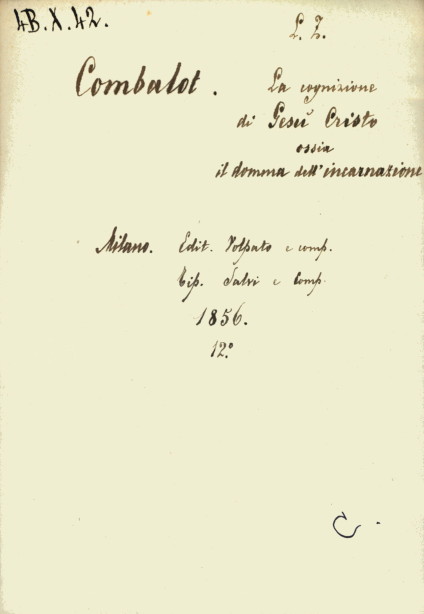 4B.X.42.
L. Z.
Combalot. La cognizione
di Gesù Cristo
ossia
il domma dell'incarnazione
Milano. Edit. Volpato e comp.
Tip. Salvi e Comp.
1856.
12.°
C.